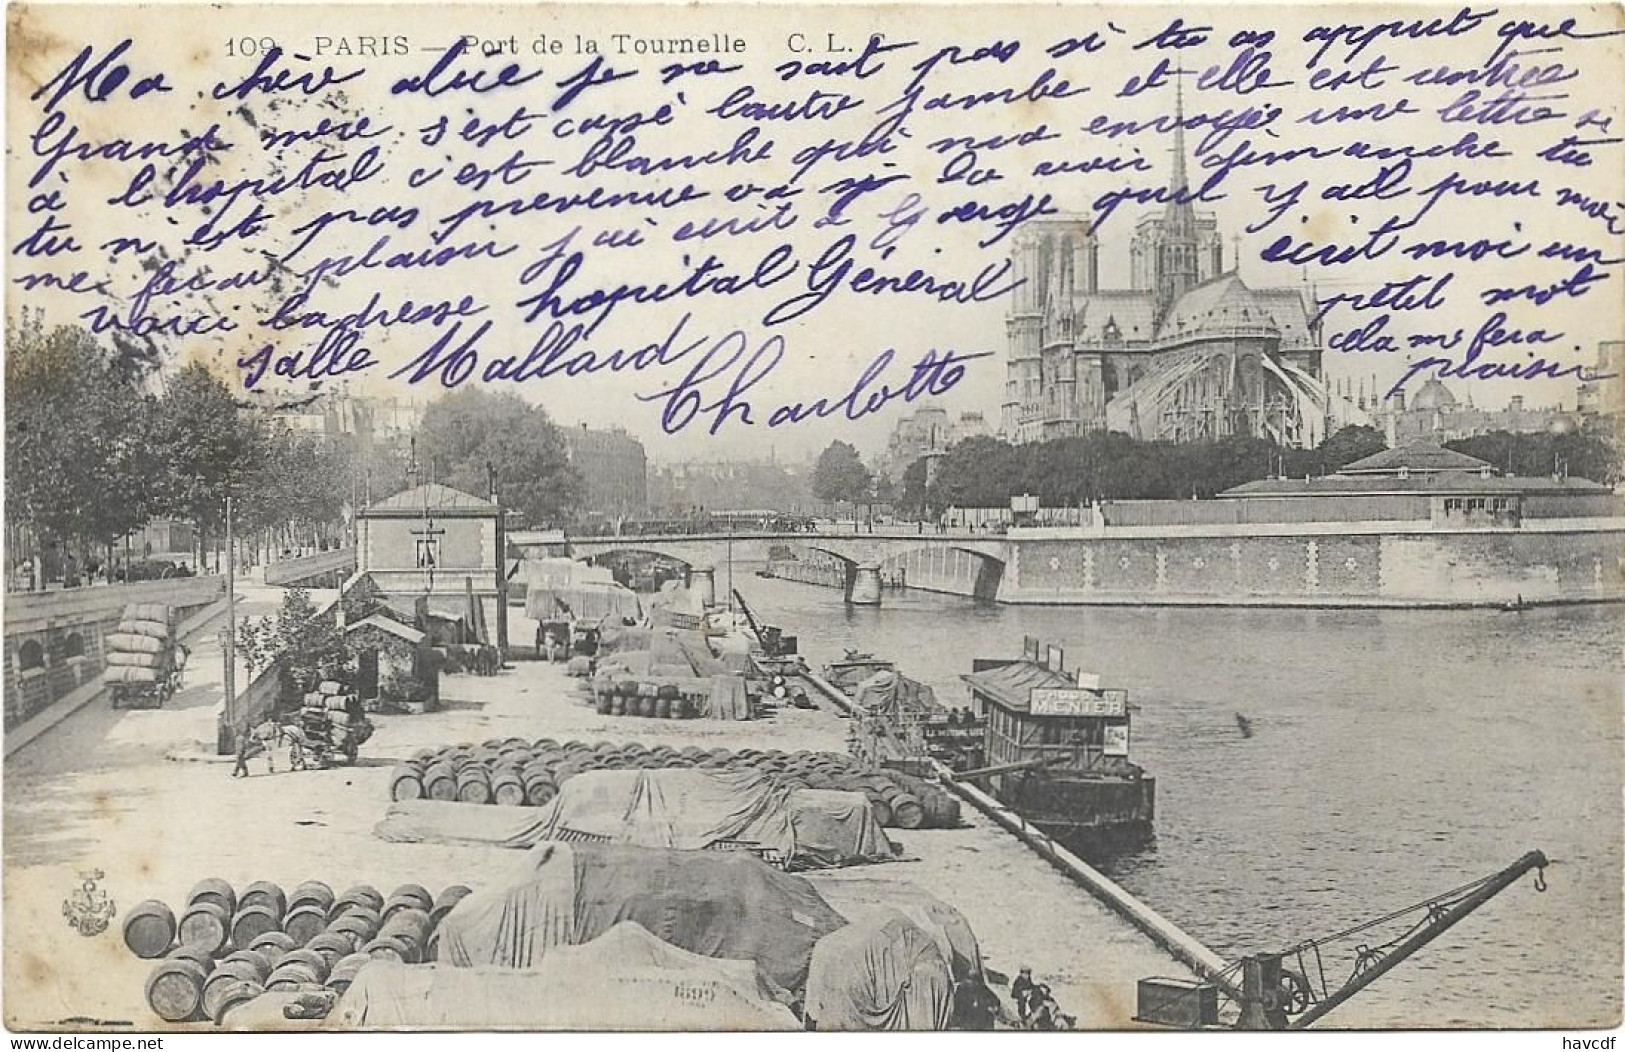 109 PARIS — Port de la Tournelle C. L. C.
Ma chère alice je ne sait pas si tu as apprit que
Grand mère s'est cassé lautre jambe et elle est rentrée
à l'hopital c'est blanche qui ma envoyé une lettre si
tu n'est pas prevenue va la voir dimanche tu
me fecai plaisir j'ai ecrit a George quil y ail pour moi
voici ladresse hopital Général
Salle Mallard
Charlotte
écrit moi un
petit mot
cela me fera
plaisir
CHOCOLAT
MENIER
1899
havcdf